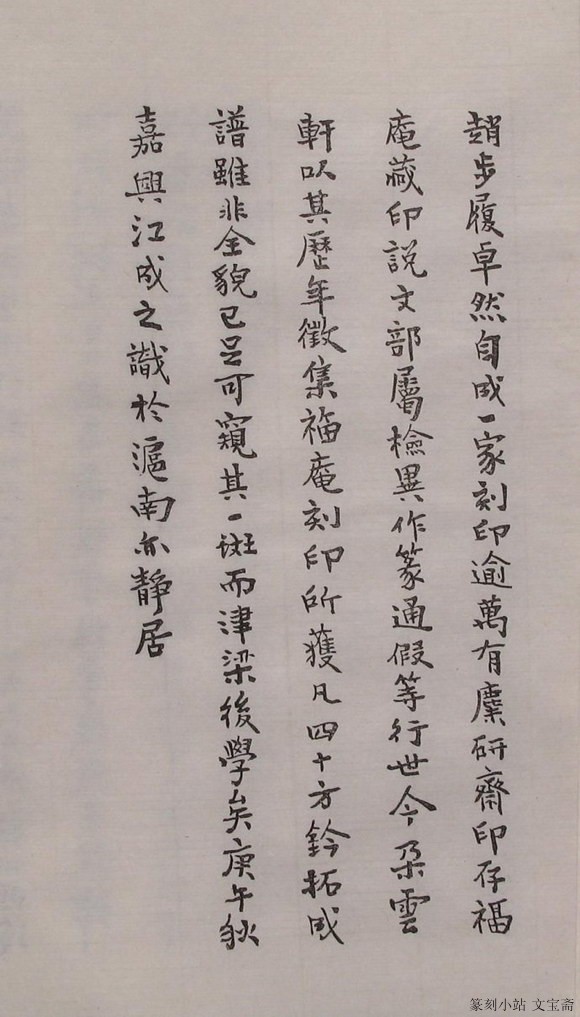 趙步履卓然自成一家刻印逾萬有麋研齋印存福
庵藏印説文部屬檢異作篆通假等行世今朶雲
軒以其歷年徵集福庵刻印所獲凡四十方鈐拓成
譜雖非全貌已足可窺其一斑而津梁後學矣庚午秋
嘉興江成之識於滬南亦靜居
篆刻小站 文宝斋